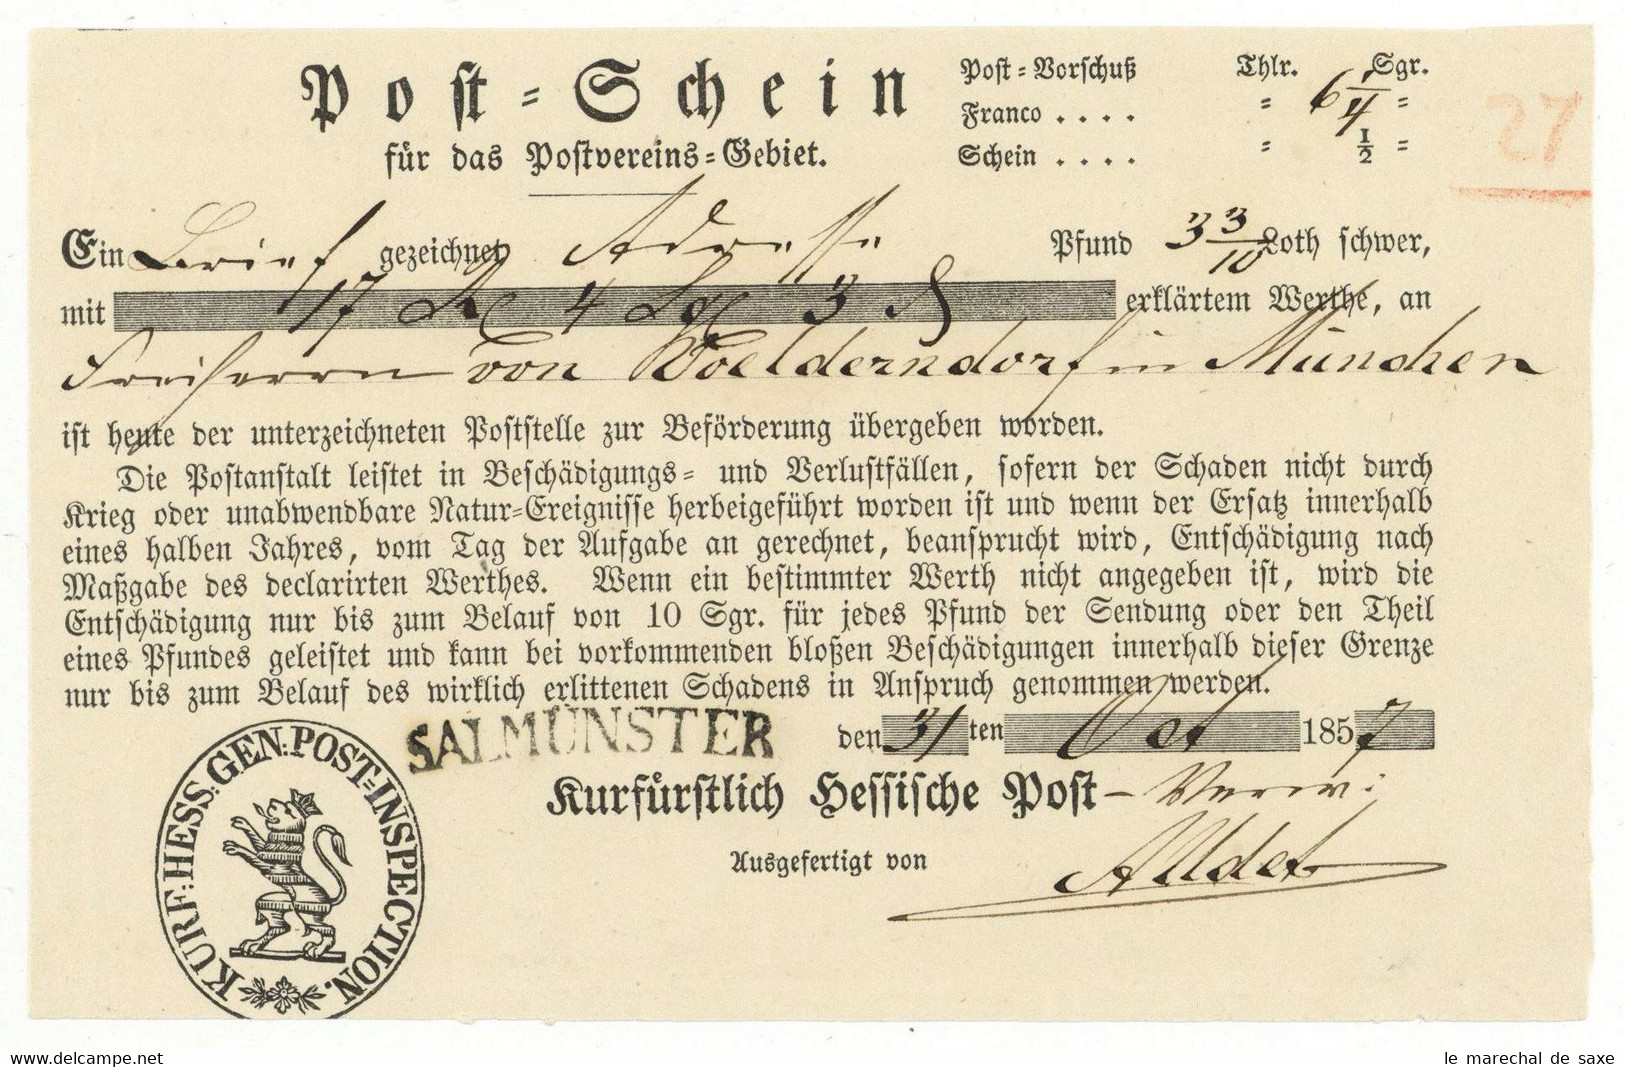 Post-Schein
für das Postvereins-Gebiet.
Post-Vorschuß Thlr. Sgr.
Franco . . . . " 6 1/4 "
Schein . . . . " 1/2 "
27
Ein Brief gezeichnet Adresse Pfund 3 3/10 Loth schwer,
mit 17 4 3 erklärtem Werthe, an
Freiherrn von Voelderndorf in München
ist heute der unterzeichneten Poststelle zur Beförderung übergeben worden.
Die Postanstalt leistet in Beschädigungs- und Verlustfällen, sofern der Schaden nicht durch
Krieg oder unabwendbare Natur-Ereignisse herbeigeführt worden ist und wenn der Ersatz innerhalb
eines halben Jahres, vom Tag der Aufgabe an gerechnet, beansprucht wird, Entschädigung nach
Maßgabe des declarirten Werthes. Wenn ein bestimmter Werth nicht angegeben ist, wird die
Entschädigung nur bis zum Belauf von 10 Sgr. für jedes Pfund der Sendung oder den Theil
eines Pfundes geleistet und kann bei vorkommenden bloßen Beschädigungen innerhalb dieser Grenze
nur bis zum Belauf des wirklich erlittenen Schadens in Anspruch genommen werden.
SALMÜNSTER den 31ten Oct 1857
Kurfürstlich Hessische Post-Verw:
Ausgefertigt von
KURF: HESS: GEN: POST-INSPECTION.
www.delcampe.net
le marechal de saxe